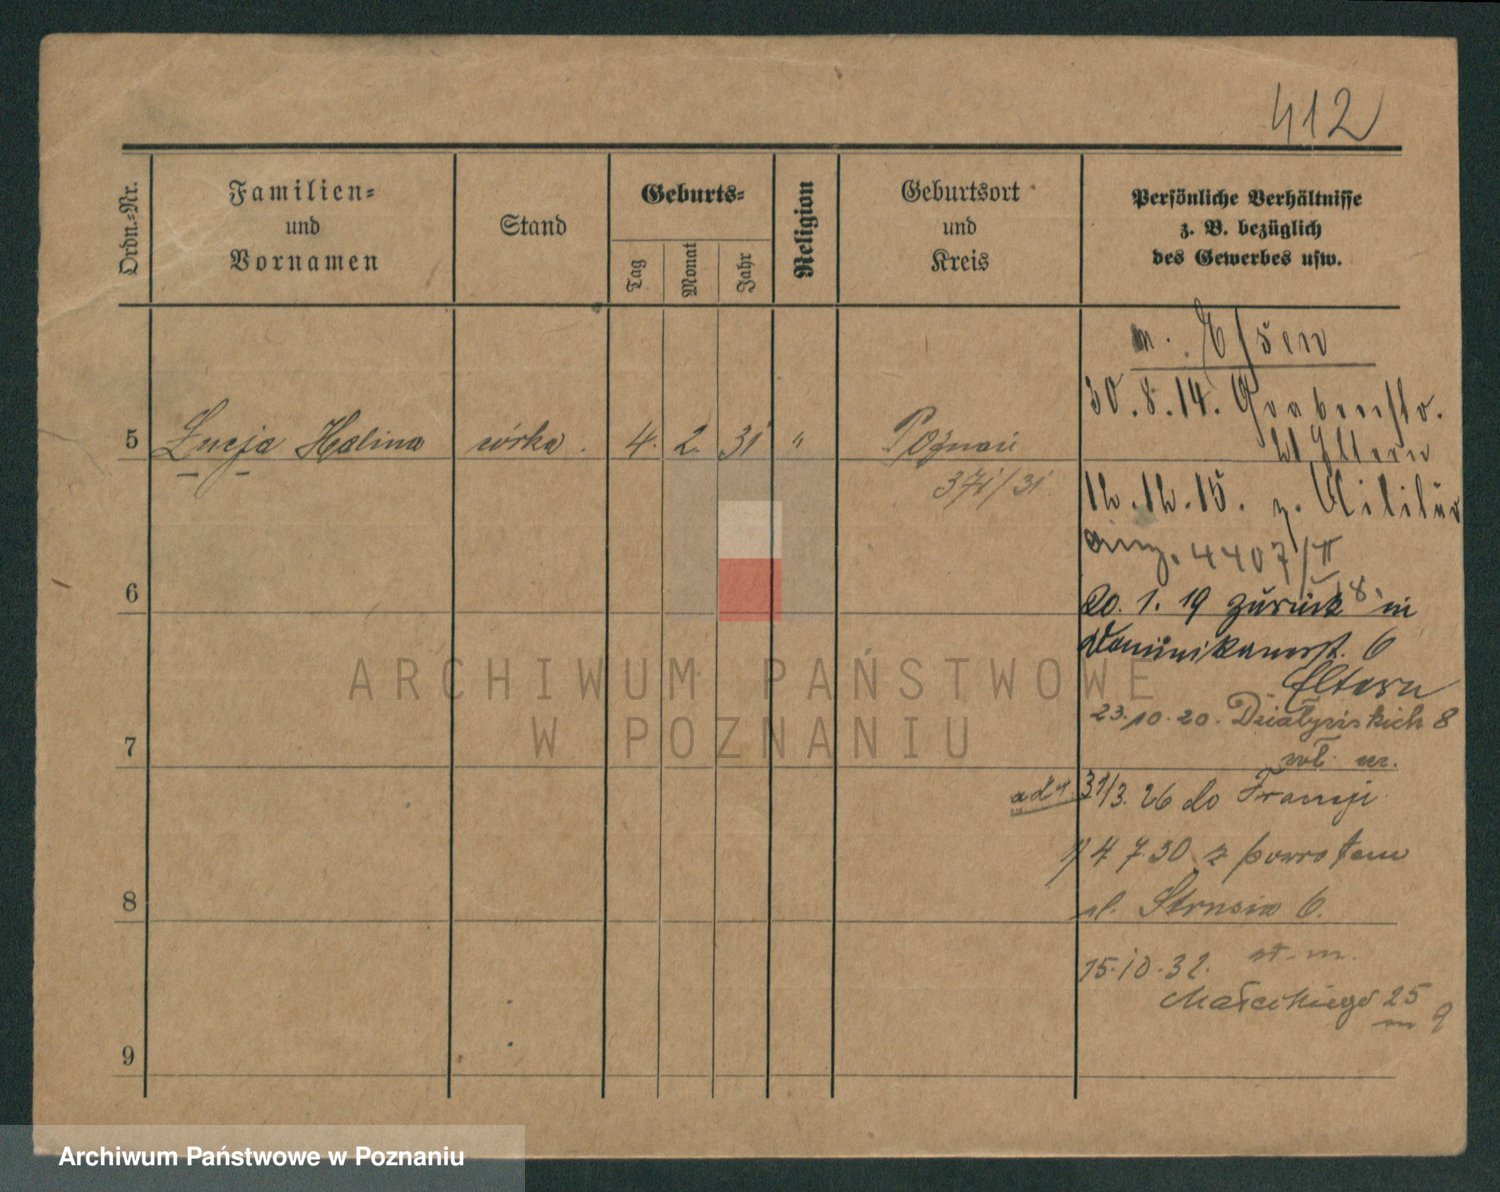 412
Ordn.-Nr.
Familien-
und
Vornamen
Stand
Geburts-
Tag
Monat
Jahr
Religion
Geburtsort
und
Kreis
Persönliche Verhältnisse
z. B. bezüglich
des Gewerbes usw.
n. Essen
30.8.14. Grabenstr.
Eltern
5 Łucja Halina córka. 4. 2. 31 " Poznań
371/31
12.12.15. z. Militär
einz. 4407/II
18.
6
20. 1. 19 zurück in
Dominikanerstr. 6
Eltern
23.10.20. Działyńskich 8
wł. m.
7
adn. 31/3. 26 do Francji
4 7 30 z powrotem
8
ul. Strusia 6.
15.10.32. st. m.
Małeckiego 25
m 9
9
ARCHIWUM PAŃSTWOWE
W POZNANIU
Archiwum Państwowe w Poznaniu